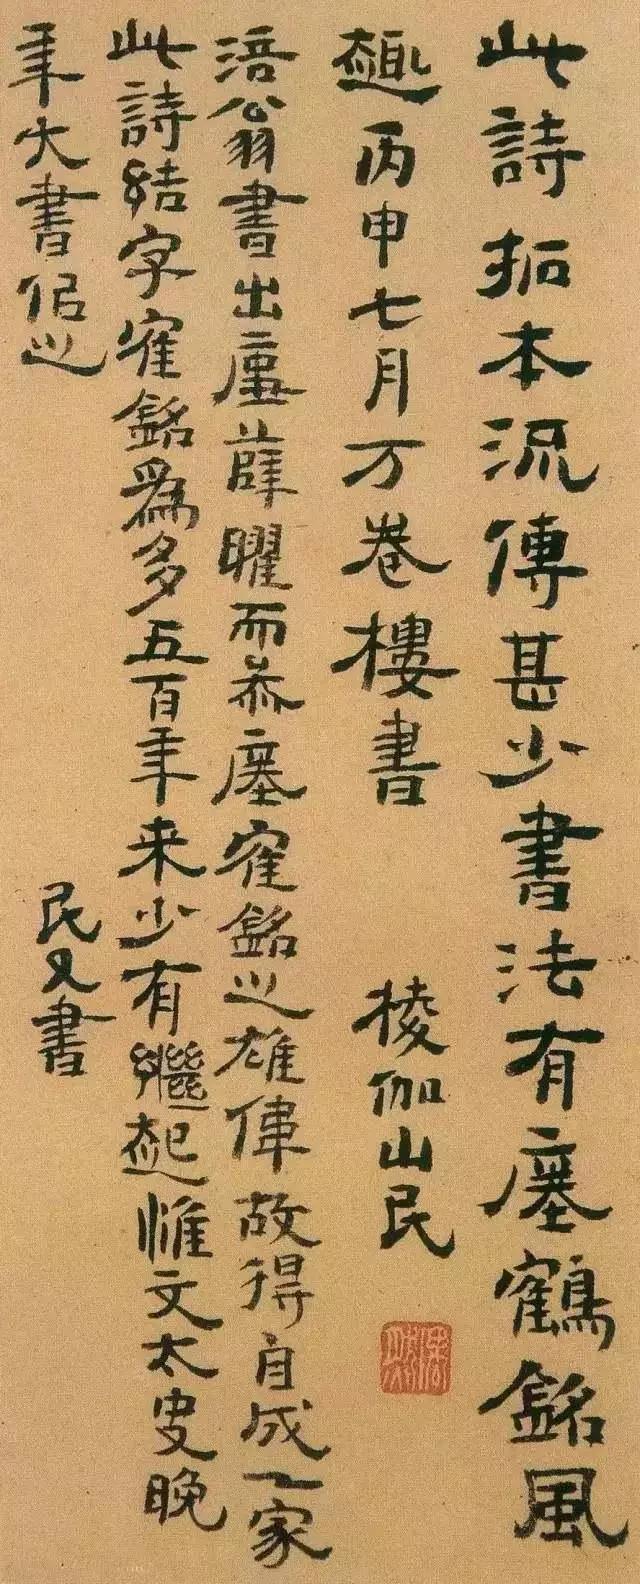 此詩拓本流傳甚少書法有瘞鶴銘風
趣丙申七月万卷樓書
棱伽山民
涪翁書出薛曜而叅瘞寉銘之雄偉故得自成一家
此詩結字寉銘爲多五百年来少有繼起惟文太史晚
年大書佀之
民又書